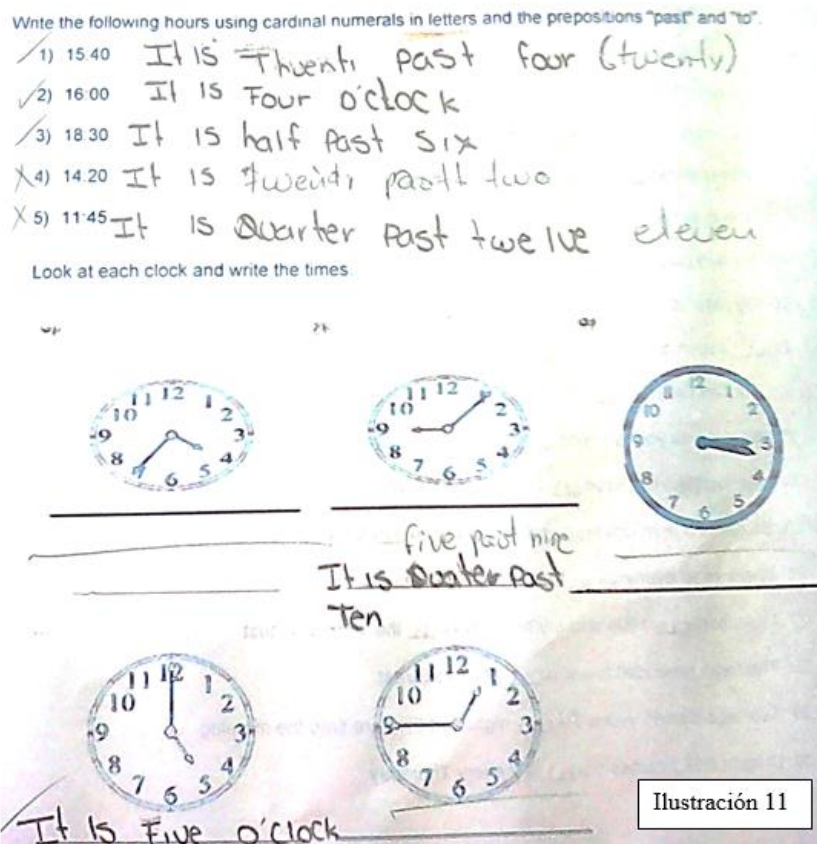 Write the following hours using cardinal numerals in letters and the prepositions "past" and "to".
1) 15.40 It is Thuenti past four (twenty)
2) 16:00 It is Four o'clock
3) 18:30 It is half Past six
4) 14:20 It is past two
5) 11:45 It is Quarter Past twelve eleven
Look at each clock and write the times.
11 12 1
10 2
9 3
8 4
7 6 5
11 12 1
10 2
9 3
8 4
7 6 5
12 1
10 2
9 3
8 4
7 6 5
five past nine
It is Quater Past
Ten
11 12 1
10 2
9 3
8 4
7 6 5
11 12 1
10 2
9 3
8 4
7 6 5
It Is Five o'clock
Ilustración 11